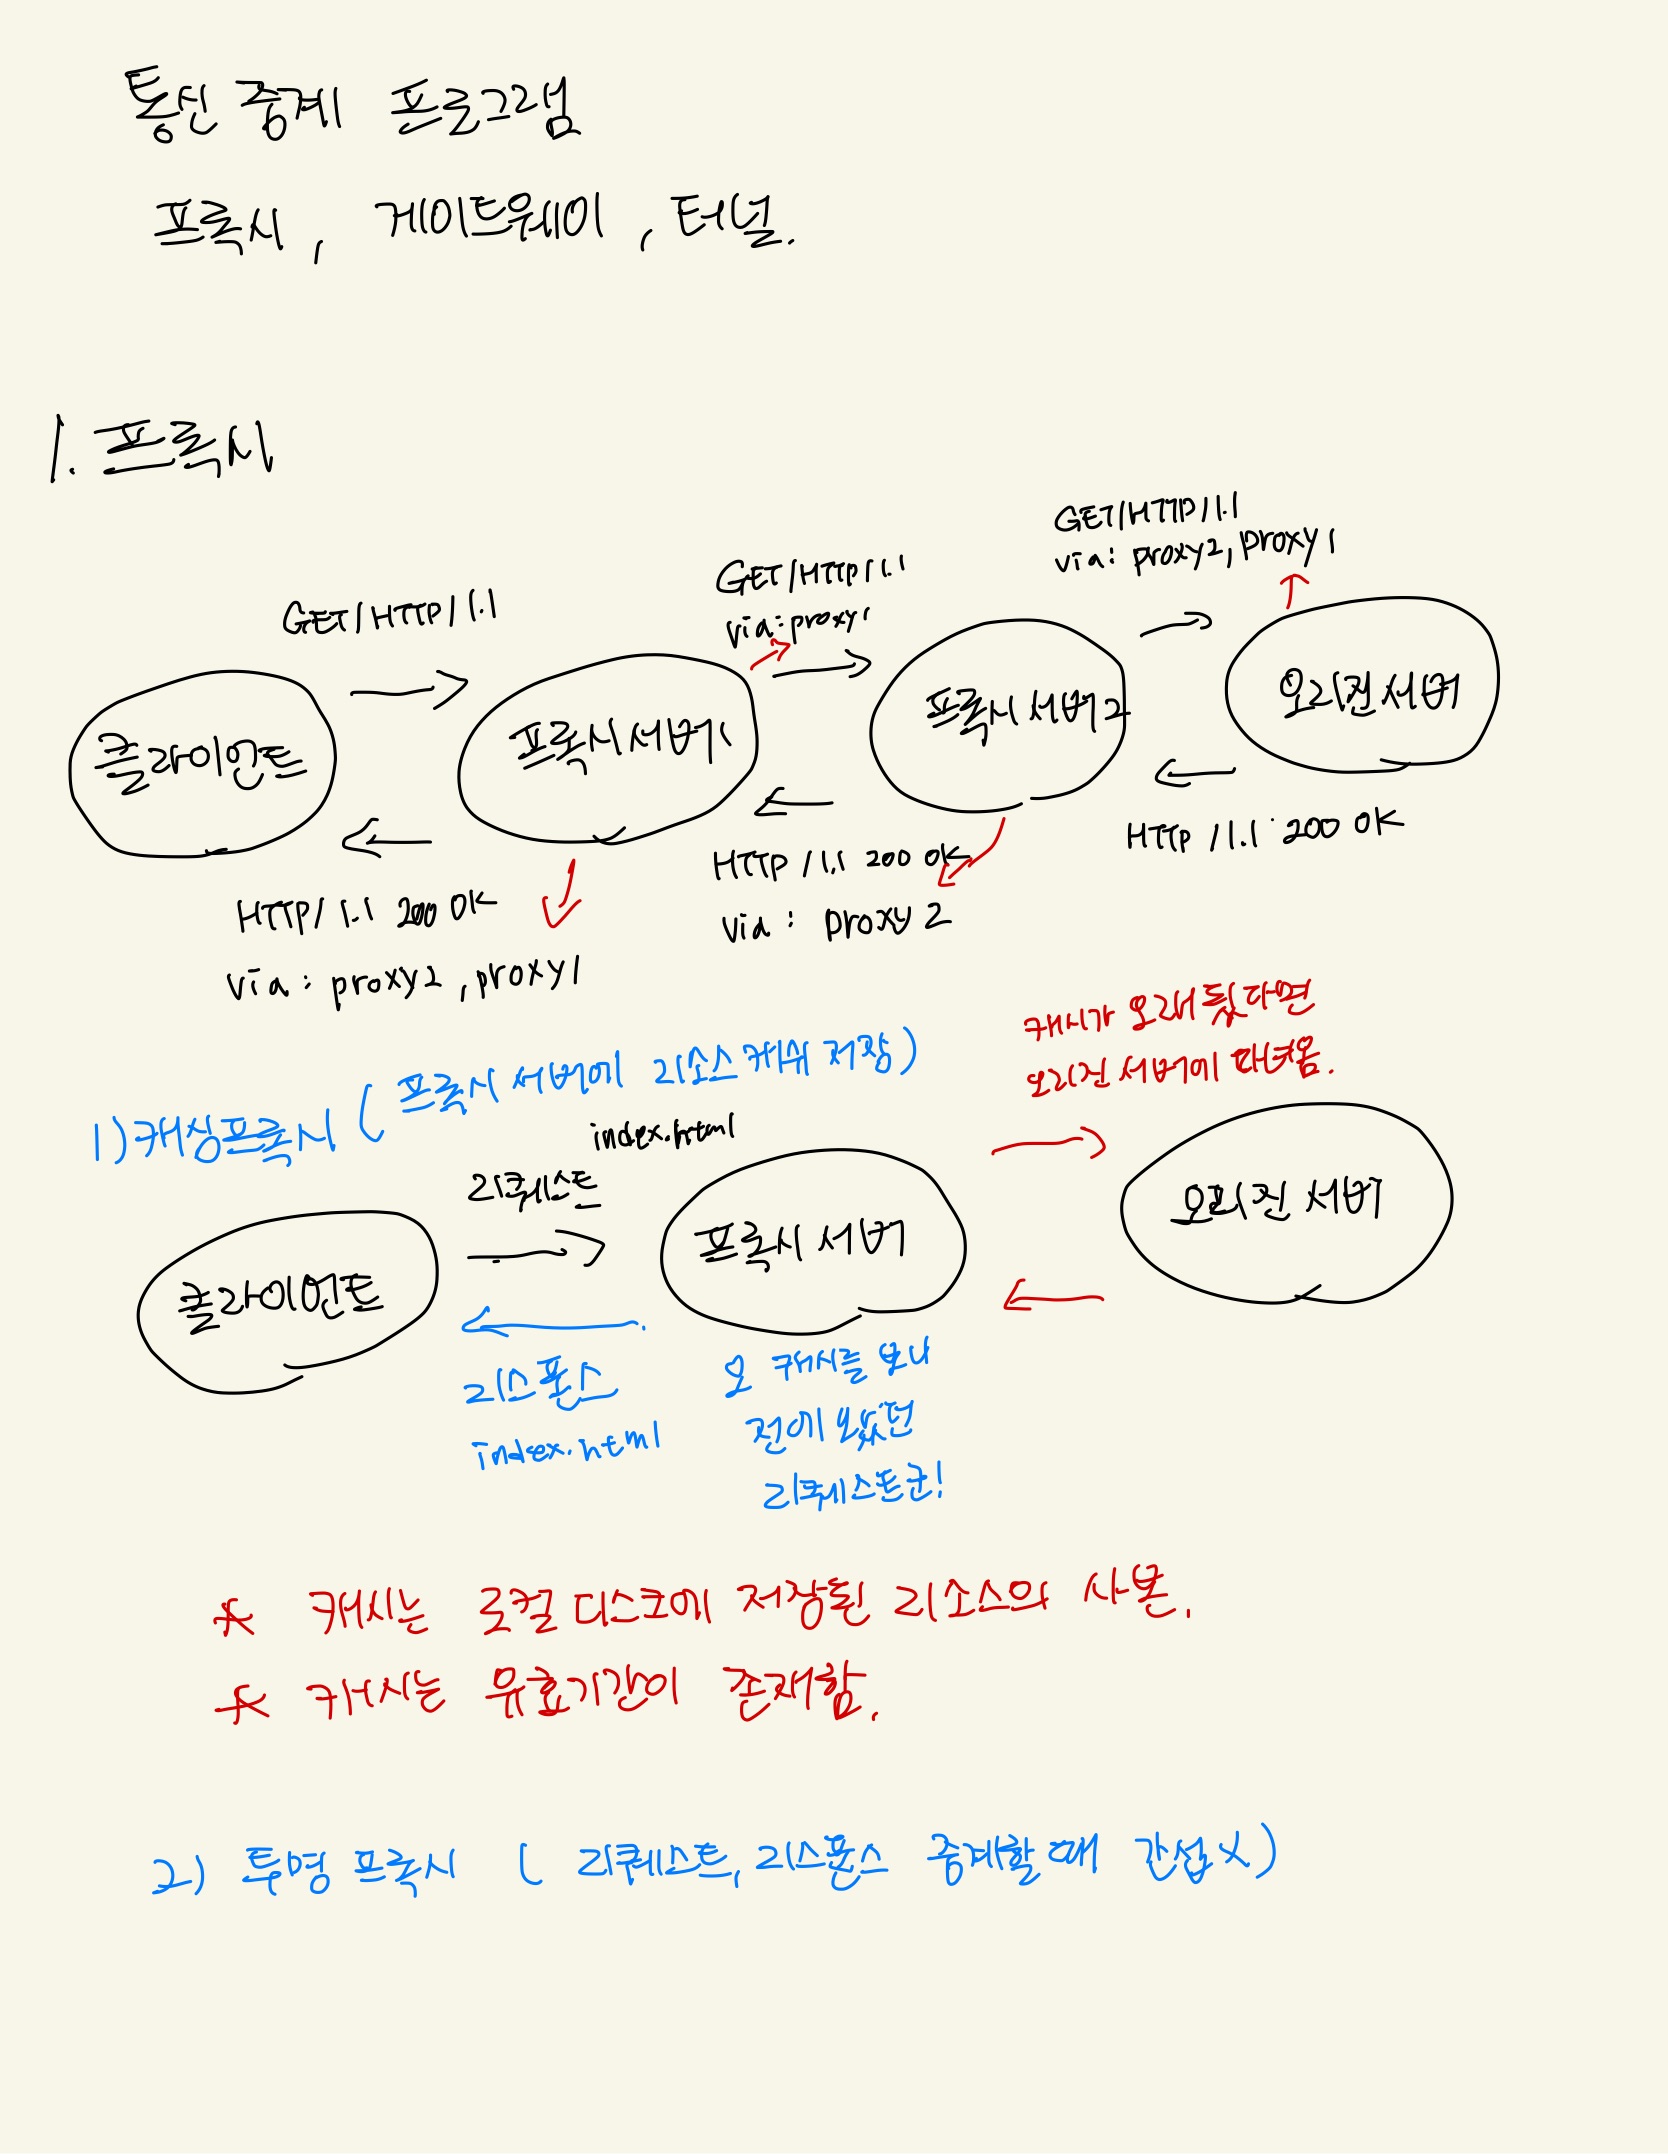 통신 중계 프로그램
프록시, 게이트웨이, 터널.
1. 프록시
GET/HTTP/1.1
GET/HTTP/1.1
via:proxy1
GET/HTTP/1.1
via: proxy2, proxy1
클라이언트
프록시 서버1
프록시 서버2
오리진 서버
HTTP/1.1 200 OK
via: proxy2, proxy1
HTTP/1.1 200 OK
via: proxy2
HTTP/1.1 200 OK
1) 캐싱프록시 (프록시 서버에 리소스 캐쉬 저장)
캐시가 오래 됐다면
오리진 서버에 다녀옴.
리퀘스트
index.html
클라이언트
프록시 서버
오리진 서버
리스폰스
index.html
오 캐시를 보니
전에 왔던
리퀘스트군!
* 캐시는 로컬 디스크에 저장된 리소스의 사본.
* 캐시는 유효기간이 존재함.
2) 투명 프록시 ( 리퀘스트, 리스폰스 중계할 때 간섭 X)